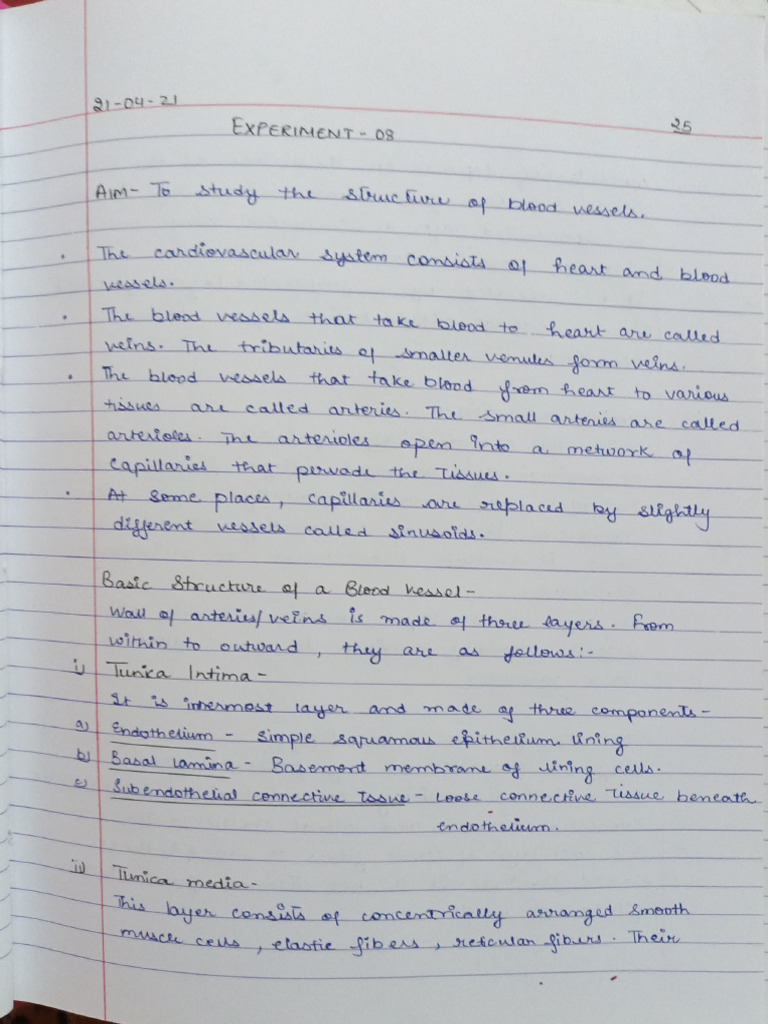 21-04-21
EXPERIMENT - 08
25
AIM - To study the structure of blood vessels.
• The cardiovascular system consists of heart and blood
vessels.
• The blood vessels that take blood to heart are called
veins. The tributaries of smaller venules form veins.
• The blood vessels that take blood from heart to various
tissues are called arteries. The small arteries are called
arterioles. The arterioles open into a network of
capillaries that pervade the tissues.
• At some places, capillaries are replaced by slightly
different vessels called sinusoids.
Basic Structure of a Blood Vessel -
Wall of arteries/veins is made of three layers. From
within to outward, they are as follows:-
i) Tunica Intima -
It is innermost layer and made of three components -
a) Endothelium - Simple squamous epithelium lining
b) Basal lamina - Basement membrane of lining cells.
c) Subendothelial connective tissue - Loose connective tissue beneath
endothelium.
ii) Tunica media -
This layer consists of concentrically arranged smooth
muscle cells, elastic fibers, reticular fibers. Their